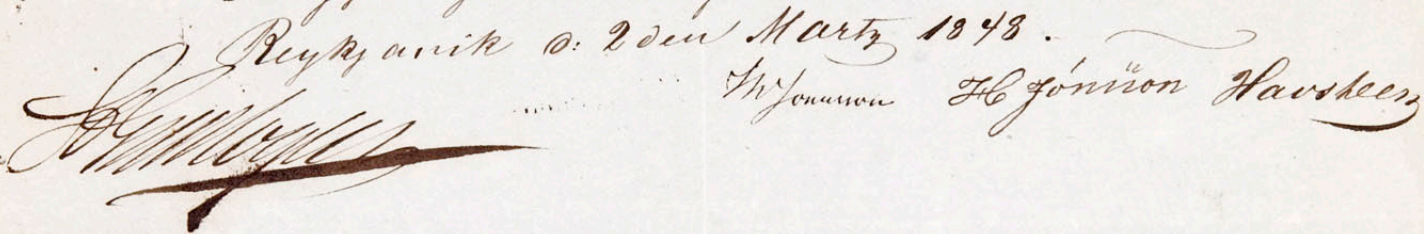 Reykjavik d: 2den Martz 1848.
Jónsson H Jónsson Havsteen